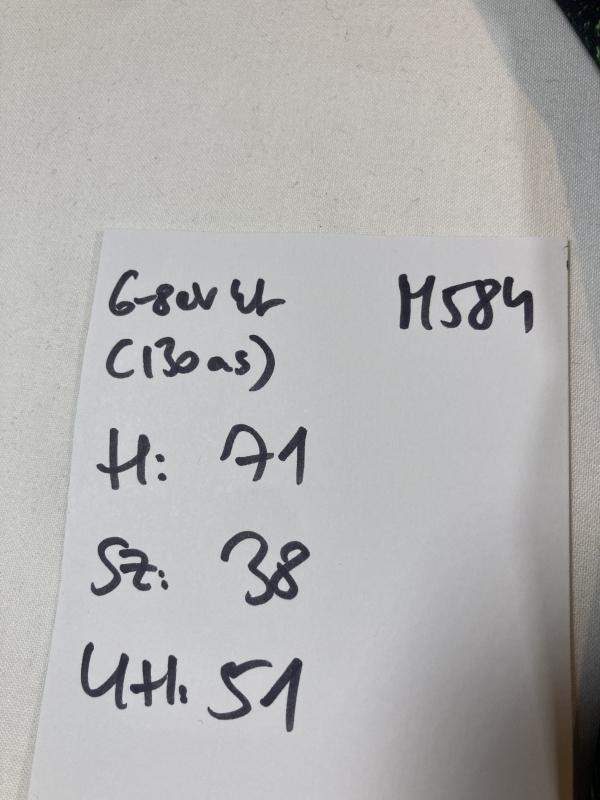 6-8 év M584
(130as)
H: 71
Sz: 38
UH: 51